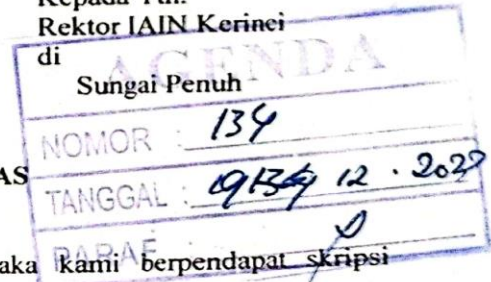 Kepada Yth.
Rektor IAIN Kerinci
di
AGENDA
Sungai Penuh
NOMOR : 134
AS
TANGGAL : 12 . 202
PARAF :
aka kami berpendapat skripsi